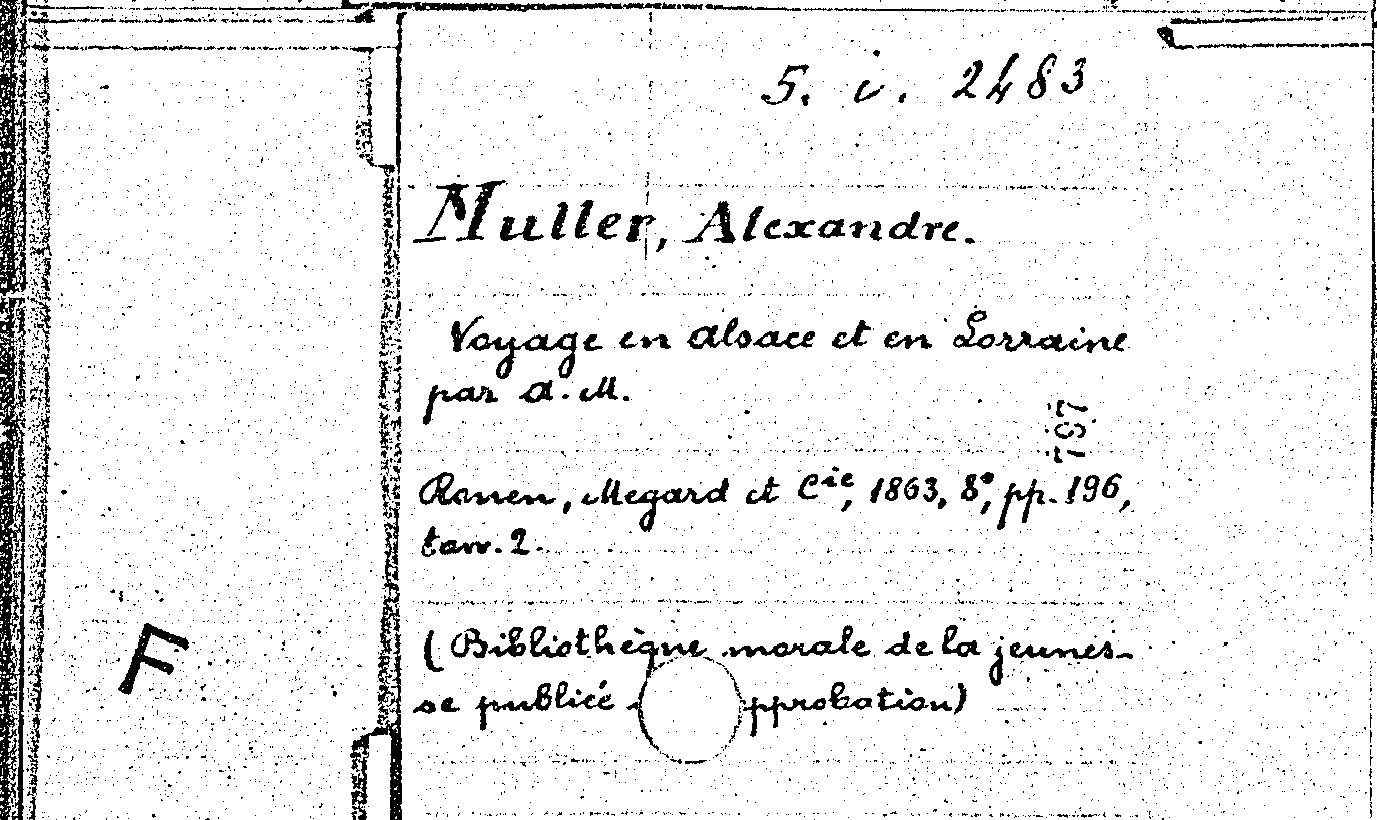 5. i. 2483
Muller, Alexandre.
Voyage en Alsace et en Lorraine
par A. M.
797
Rouen, Megard et Cie, 1863, 8°, pp. 196,
tavv. 2.
F
(Bibliothèque morale de la jeunes-
se publiée pprobation)